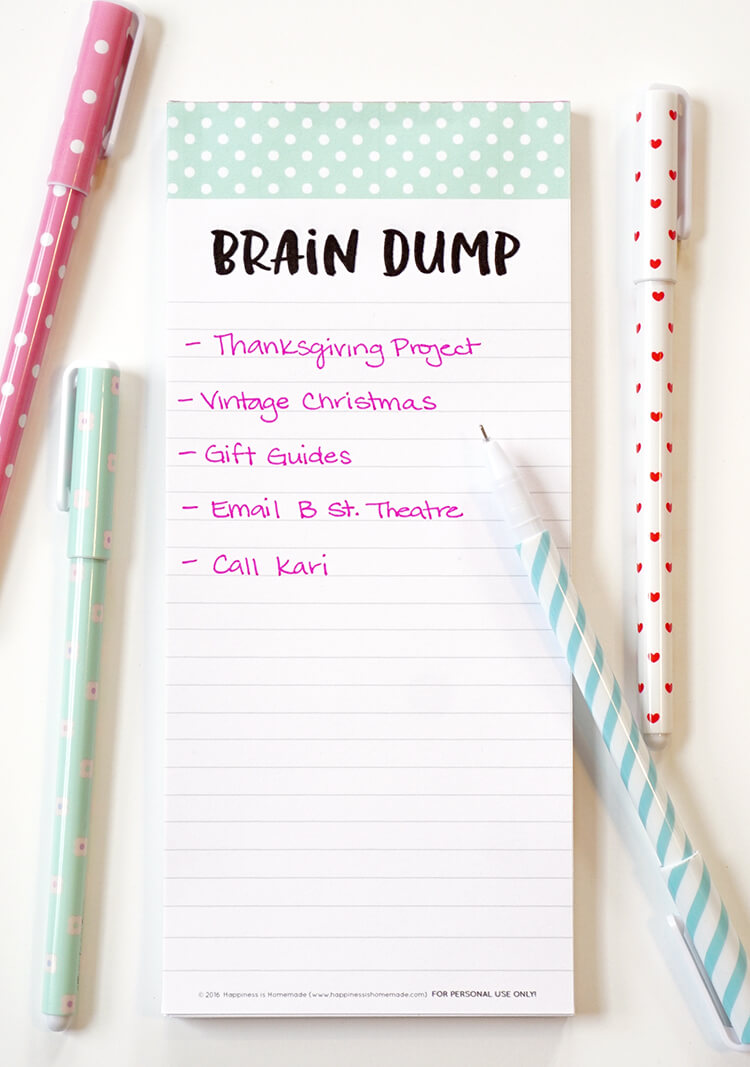 BRAIN DUMP
- Thanksgiving Project
- Vintage Christmas
- Gift Guides
- Email B St. Theatre
- Call Kari
© 2016 Happiness is Homemade (www.happinessishomemade.com) FOR PERSONAL USE ONLY!